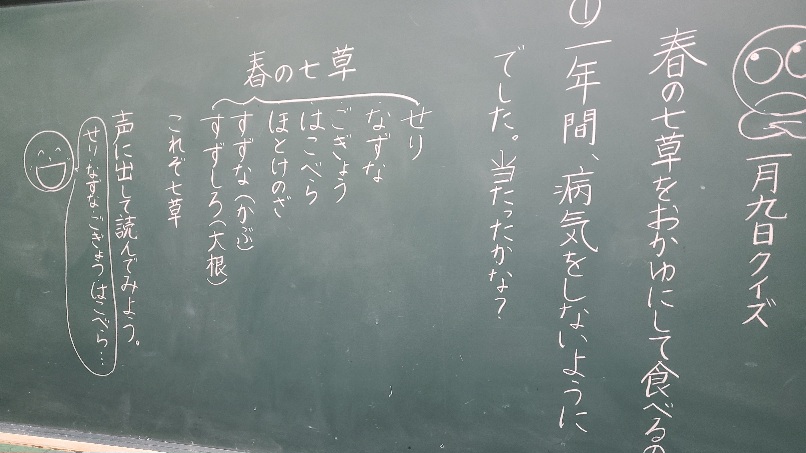 一月九日クイズ
春の七草をおかゆにして食べるの
①一年間、病気をしないように
でした。当たったかな？
春の七草
せり
なずな
ごぎょう
はこべら
ほとけのざ
すずな（かぶ）
すずしろ（大根）
これぞ七草
声に出して読んでみよう。
せり・なずな・ごぎょうはこべら…